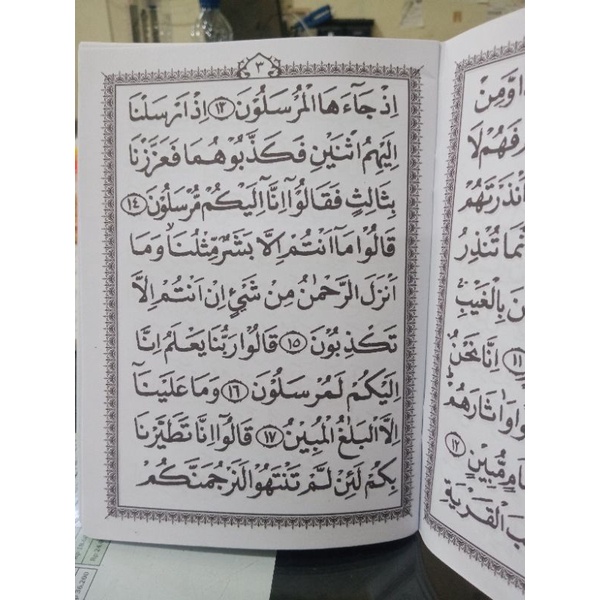 ٣
اِذْ جَآءَهَا الْمُرْسَلُوْنَ ﴿١٣﴾ اِذْ اَرْسَلْنَا
اِلَيْهِمُ اثْنَيْنِ فَكَذَّبُوْهُمَا فَعَزَّزْنَا
بِثَالِثٍ فَقَالُوْٓا اِنَّآ اِلَيْكُمْ مُّرْسَلُوْنَ ﴿١٤﴾
قَالُوْا مَآ اَنْتُمْ اِلَّا بَشَرٌ مِّثْلُنَاۙ وَمَآ
اَنْزَلَ الرَّحْمٰنُ مِنْ شَيْءٍ اِنْ اَنْتُمْ اِلَّا
تَكْذِبُوْنَ ﴿١٥﴾ قَالُوْا رَبُّنَا يَعْلَمُ اِنَّآ
اِلَيْكُمْ لَمُرْسَلُوْنَ ﴿١٦﴾ وَمَا عَلَيْنَآ
اِلَّا الْبَلٰغُ الْمُبِيْنُ ﴿١٧﴾ قَالُوْٓا اِنَّا تَطَيَّرْنَا
بِكُمْ لَئِنْ لَّمْ تَنْتَهُوْا لَنَرْجُمَنَّكُمْ
وَّمِنْ
لَا
اَنْذَرْتَهُمْ
تُنْذِرُ
بِالْغَيْبِ
﴿١١﴾ اِنَّا نَحْنُ
وَاٰثَارَهُمْ
مُّبِيْنٍ ﴿١٢﴾
الْقَرْيَةِ